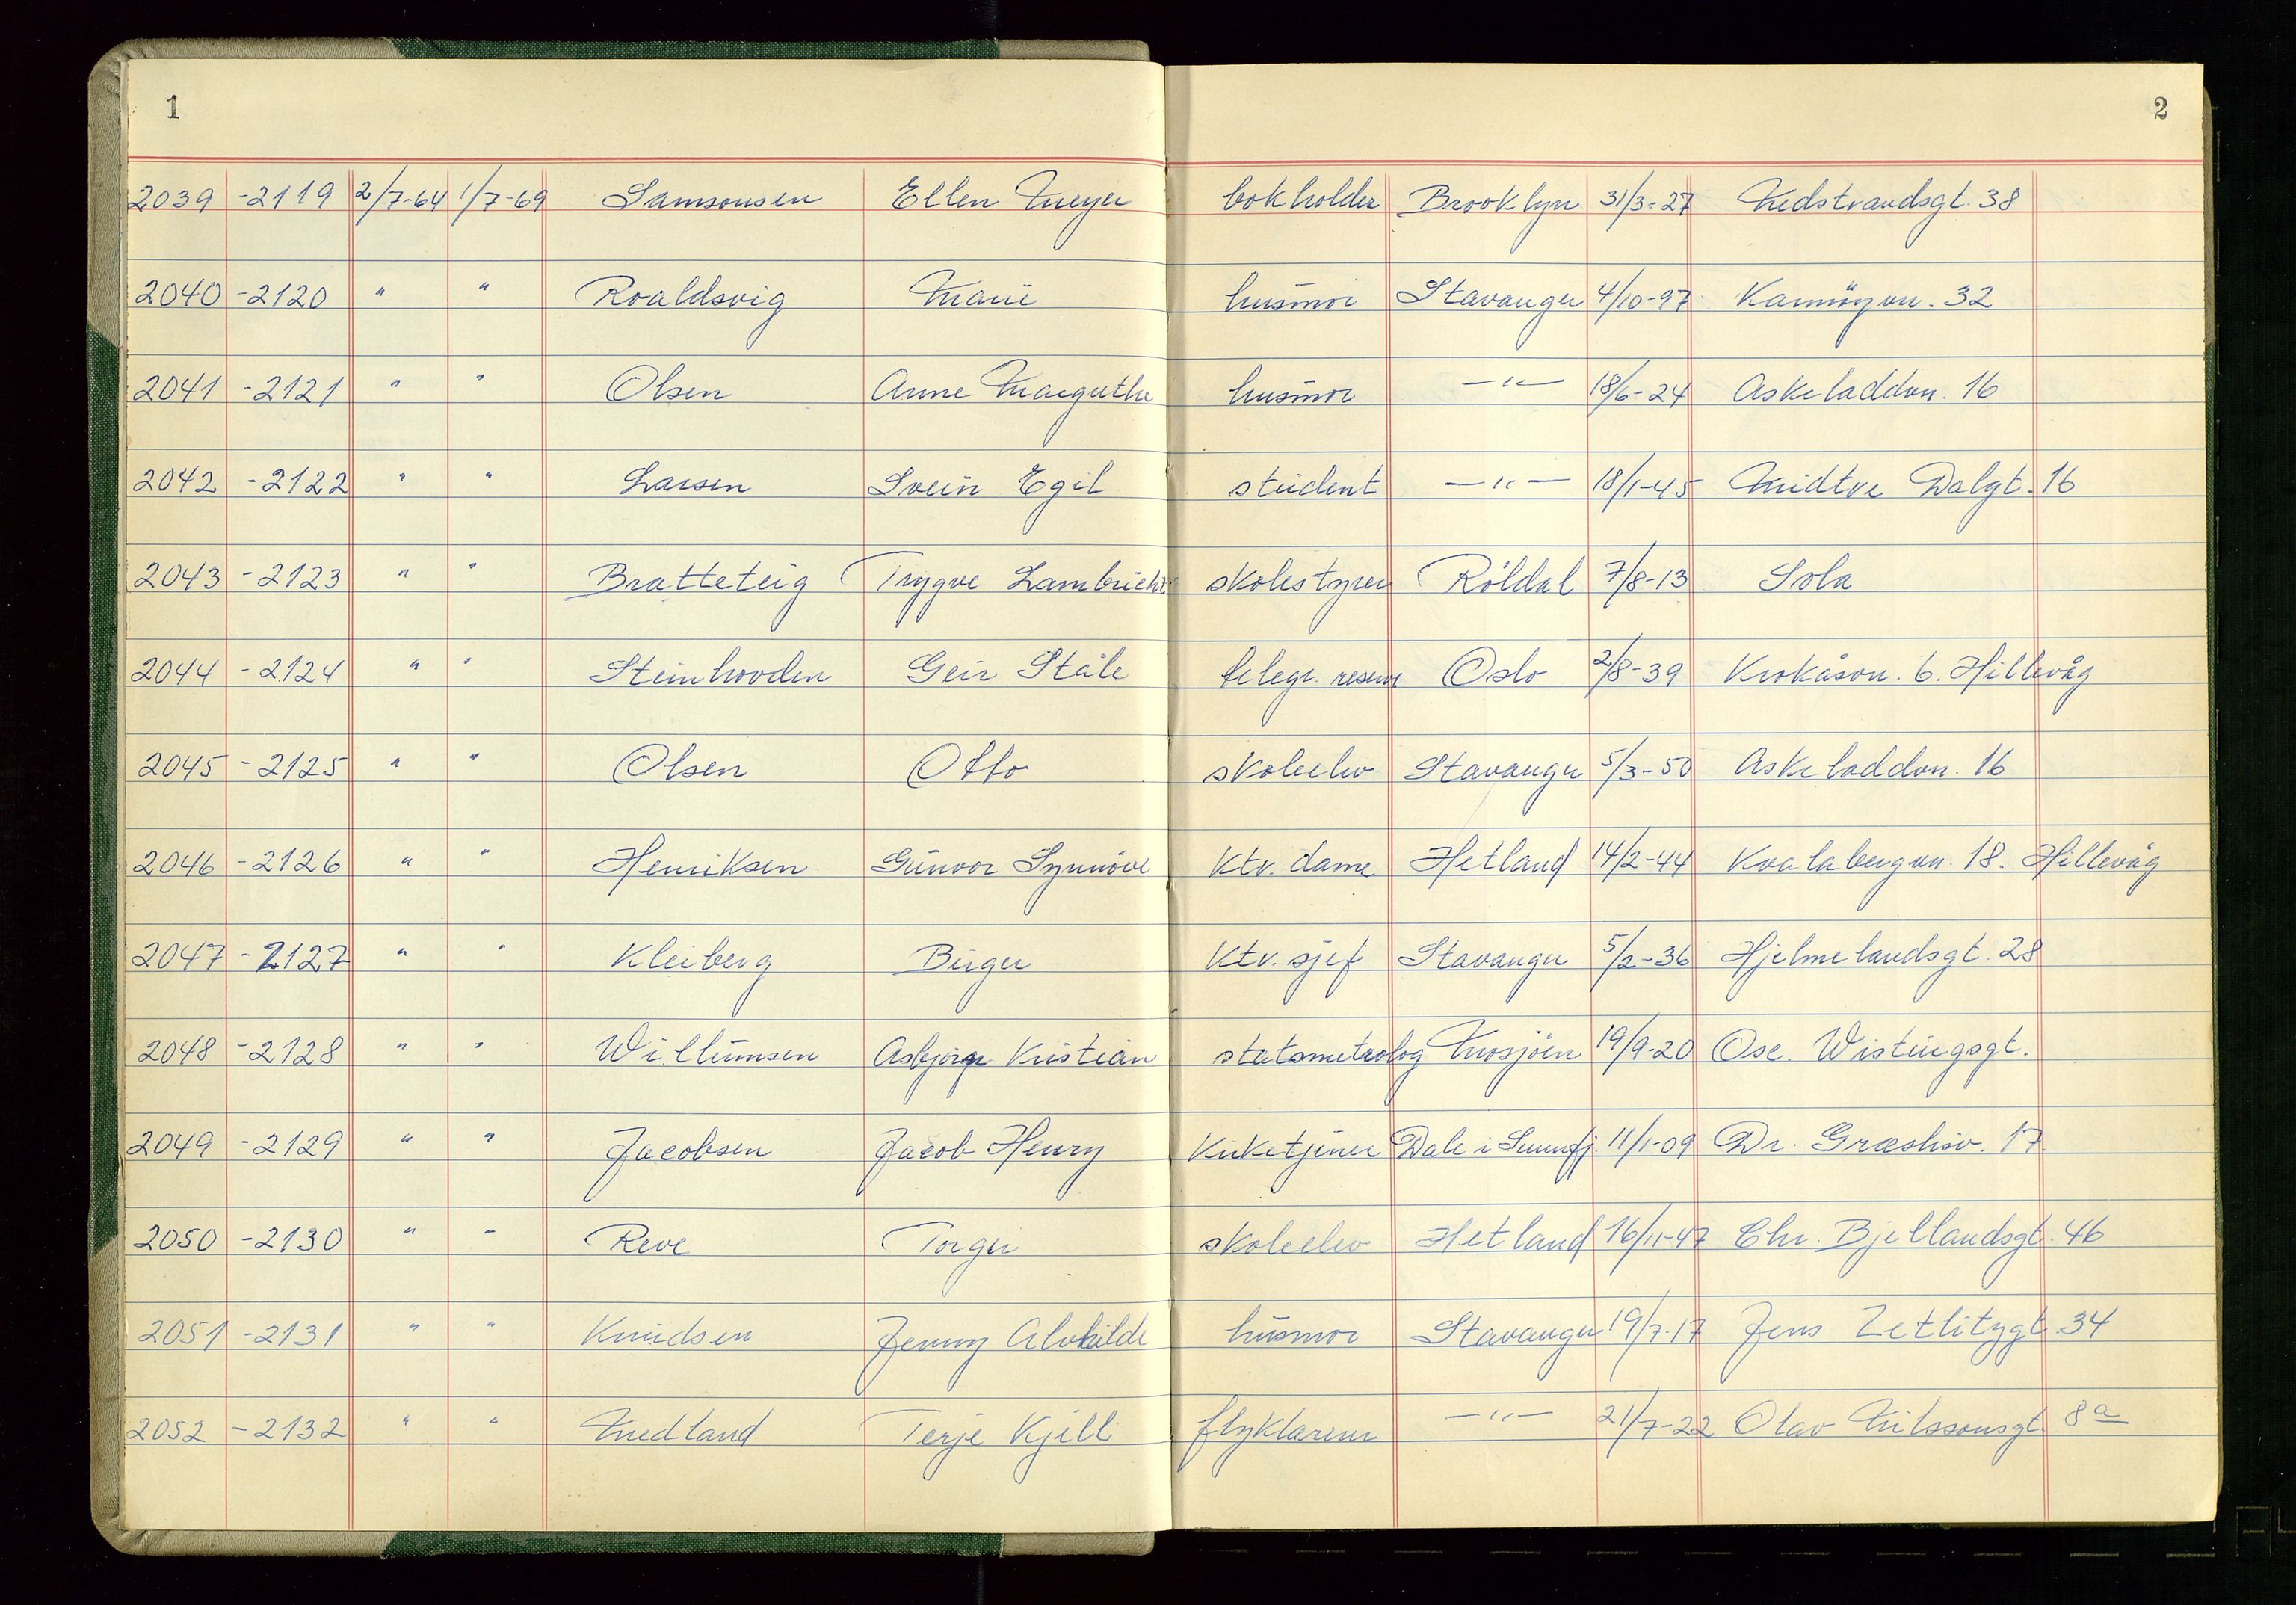 1
2
2039 -2119 2/7-64 1/7-69 Samsonsen Ellen Meyer bokholder Brooklyn 31/3-27 Nedstrandsgt. 38
2040 -2120 " " Roaldsvig Marie husmor Stavanger 4/10-97 Karmøyvn. 32
2041 -2121 " " Olsen Anne Margrethe husmor —"— 18/6-24 Askeladdvn. 16
2042 -2122 " " Larsen Svein Egil student —"— 18/1-45 Midtre Dalgt. 16
2043 -2123 " " Bratteteig Trygve Lambricht skolestyrer Röldal 7/8-13 Sola
2044 -2124 " " Steinhovden Geir Ståle telegr. reserve Oslo 2/8-39 Krokåsvn. 6. Hillevåg
2045 -2125 " " Olsen Otto skoleelev Stavanger 5/3-50 Askeladdvn. 16
2046 -2126 " " Henriksen Gunvor Synnöve Ktr. dame Hetland 14/2-44 Kvalabergvn. 18. Hillevåg
2047 -2127 " " Kleiberg Birger Ktr. sjef Stavanger 5/2-36 Hjelmelandsgt. 28
2048 -2128 " " Willumsen Asbjørn Kristian statsmetrolog Mosjöen 19/9-20 Osc. Wistingsgt.
2049 -2129 " " Jacobsen Jacob Henry Kirketjener Dale i Sunnfj. 11/1-09 Dr. Græshsv. 17
2050 -2130 " " Reve Torger skoleelev Hetland 16/11-47 Chr. Bjellandsgt. 46
2051 -2131 " " Knudsen Jenny Alvhilde husmor Stavanger 19/7-17 Jens Zetlitzgt. 34
2052 -2132 " " Medland Terje Kjell flyklarerer —"— 21/7-22 Olav Nilssonsgt. 8a